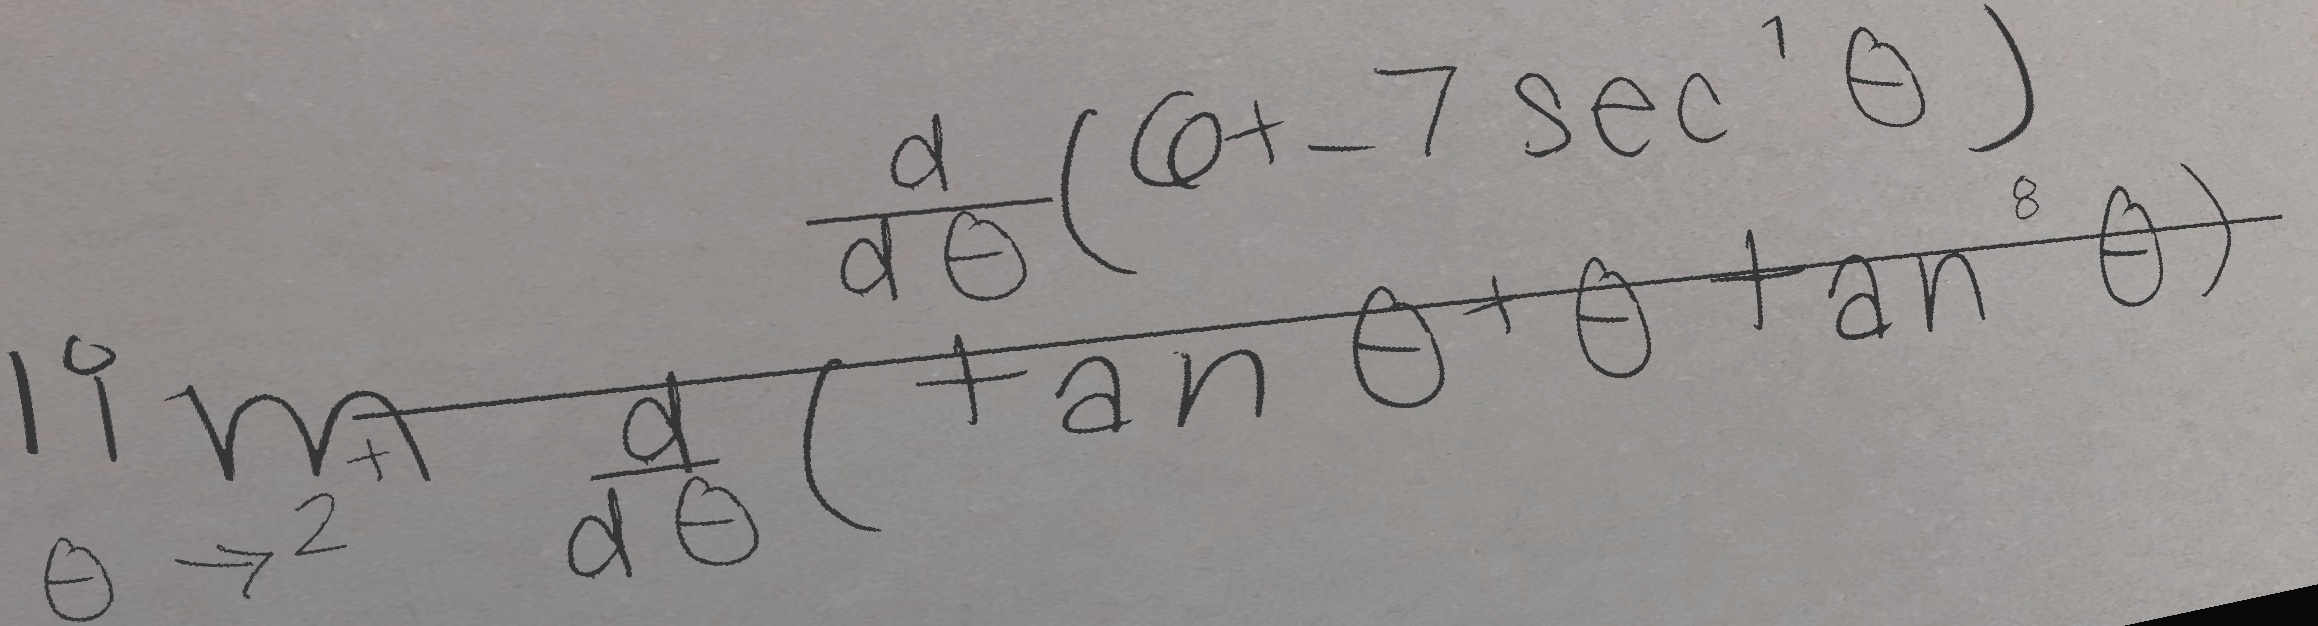 \lim_{\theta \to 2^{+}} \frac{\frac{d}{d\theta}\left(6+-7\sec^{1}\theta\right)}{\frac{d}{d\theta}\left(\tan\theta+\theta\tan^{8}\theta\right)}